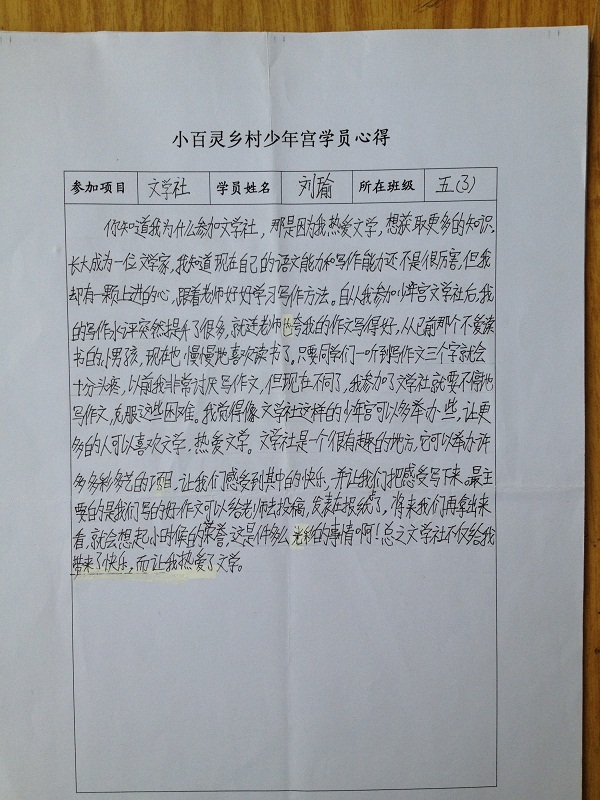 小百灵乡村少年宫学员心得
参加项目 文学社 学员姓名 刘瑜 所在班级 五(3)
你知道我为什么参加文学社，那是因为我热爱文学，想获取更多的知识。
长大成为一位文学家，我知道现在自己的语文能力和写作能力还不是很厉害，但我
却有一颗上进的心，跟着老师好好学习写作方法。自从我参加少年宫文学社后，我
的写作水评突然提升了很多，就连老师也夸我的作文写得好，从已前那个不爱读
书的小男孩，现在也慢慢地喜欢读书了。只要同学们一听到写作文三个字就会
十分头疼，以前我非常讨厌写作文，但现在不同了，我参加了文学社就要不停地
写作文，克服这些困难。我觉得像文学社这样的少年宫可以多举办一些，让更
多的人可以喜欢文学，热爱文学。文学社是一个很有趣的地方，它可以举办许
多多彩多艺的项目，让我们感受到其中的快乐，并让我们把感受写下来。最主
要的是我们写的好作文可以给老师去投稿，发表在报纸上，将来我们再拿出来
看，就会想起小时候的荣誉，这是件多么光彩的事情啊！总之文学社不仅给我
带来了快乐，而让我热爱了文学。